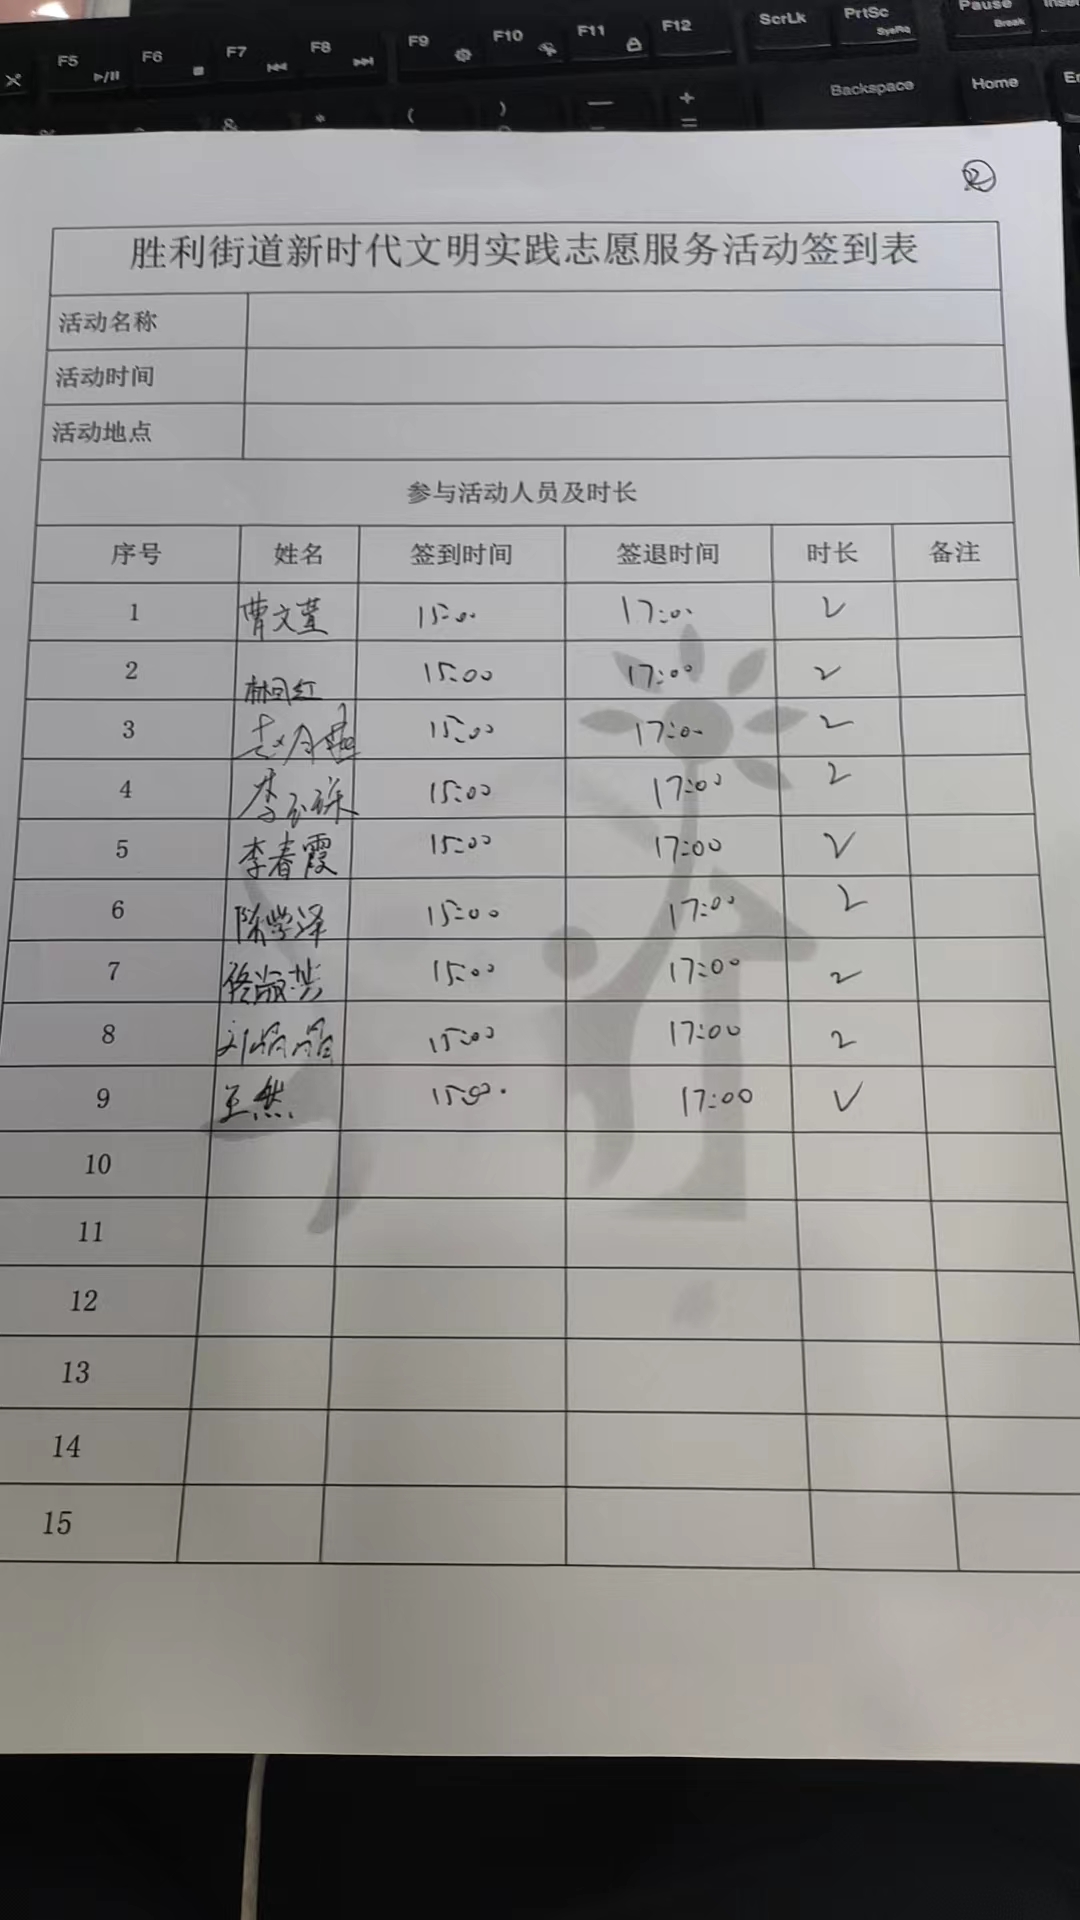 F5 F6 F7 F8 F9 F10 F11 F12 ScrLk PrtSc SysRq Pause Break
& * ( ) — + = Backspace Home
②
胜利街道新时代文明实践志愿服务活动签到表
活动名称
活动时间
活动地点
参与活动人员及时长
序号 姓名 签到时间 签退时间 时长 备注
1 曹文萱 15:00 17:00 2
2 林凤红 15:00 17:00 2
3 15:00 17:00 2
4 李玉珠 15:00 17:00 2
5 李春霞 15:00 17:00 2
6 陈学泽 15:00 17:00 2
7 佟淑芸 15:00 17:00 2
8 15:00 17:00 2
9 王然 15:00 17:00 2
10
11
12
13
14
15